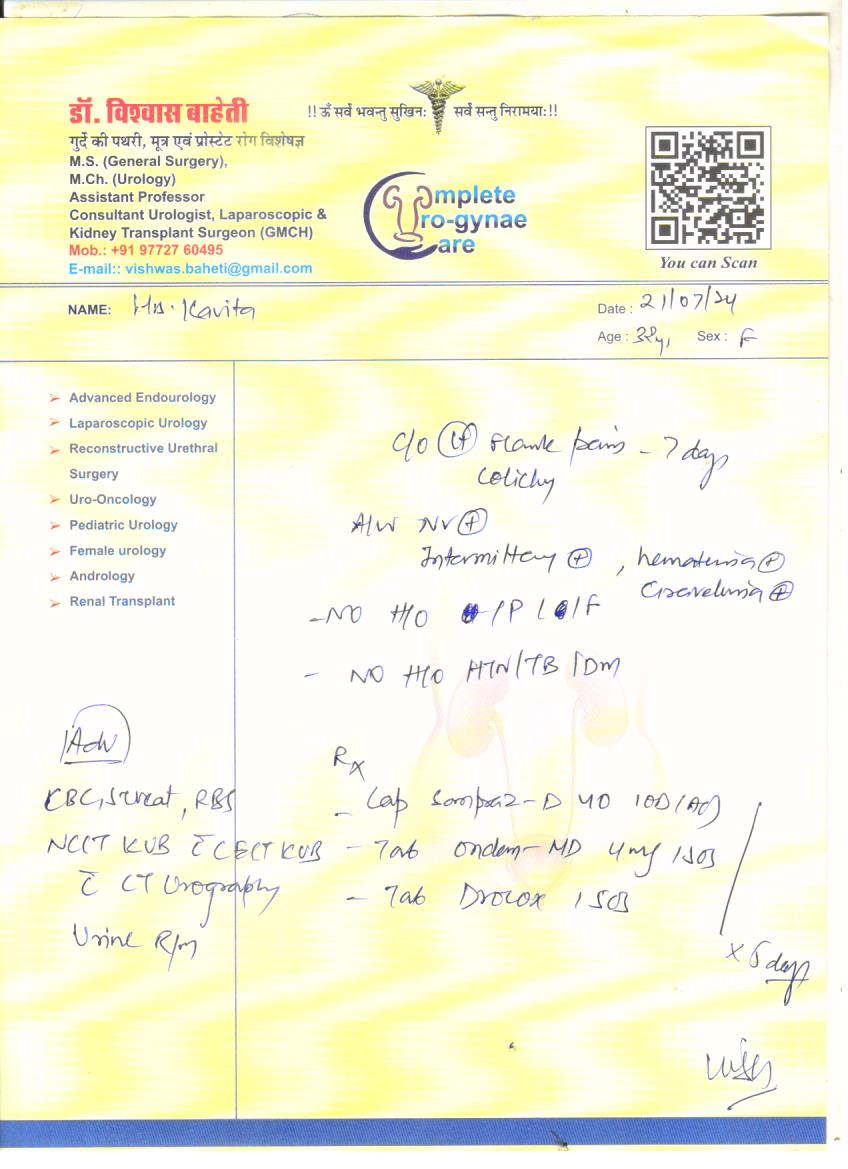 डॉ. विश्वास बाहेती
गुर्दे की पथरी, मूत्र एवं प्रोस्टेट रोग विशेषज्ञ
M.S. (General Surgery),
M.Ch. (Urology)
Assistant Professor
Consultant Urologist, Laparoscopic &
Kidney Transplant Surgeon (GMCH)
Mob.: +91 97727 60495
E-mail:: vishwas.baheti@gmail.com
!! ॐ सर्वे भवन्तु सुखिनः सर्वे सन्तु निरामयाः !!
Complete
Uro-gynae
Care
You can Scan
NAME: Kavita
Date : 21/07/24
Age : Sex : F
Advanced Endourology
Laparoscopic Urology
Reconstructive Urethral
Surgery
Uro-Oncology
Pediatric Urology
Female urology
Andrology
Renal Transplant
C/O Lt flank pain - 7 days
colicky
A/W NV +
Intermittency + , hematuria +
- NO H/O /P/ /F
- NO H/O HTN/TB/DM
Adv
CBC, S.creat, RBS
NCCT KUB c CECT KUB
c CT Urography
Urine R/m
Rx
- Cap Sompraz-D 40 1OD
- Tab Ondem-MD 4mg 1SOS
- Tab 1SOS
x 5 days